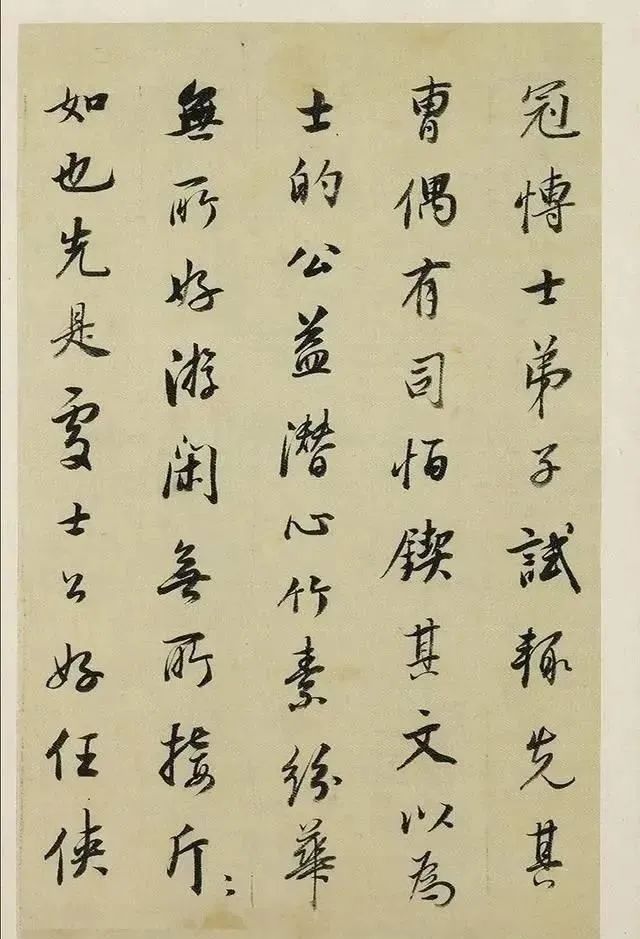 冠博士弟子試輙先其
曹偶有司恒鍥其文以為
士的公益潛心竹素紛華
無所好游閑無所接斤〻
如也先是處士公好任俠